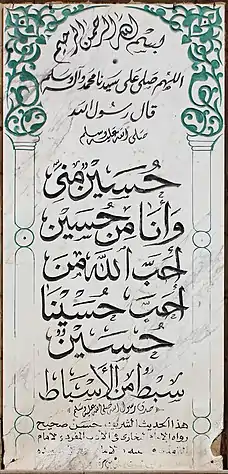 بسم الله الرحمن الرحيم
اللهم صلى على سيدنا محمد وآله وسلم
قال رسول الله
صلى الله عليه وسلم
حُسَيْن مِنِّي
وَأَنَا مِنْ حُسَيْن
أَحَبَّ اللهُ مَنْ
أَحَبَّ حُسَيْنًا
حُسَيْنٌ
سِبْطٌ مِنَ الأَسْبَاط
صدق رسول الله صلى الله عليه وسلم
هذا الحديث الشريف حسن صحيح
رواه الإمام البخاري في الأدب المفرد والإمام